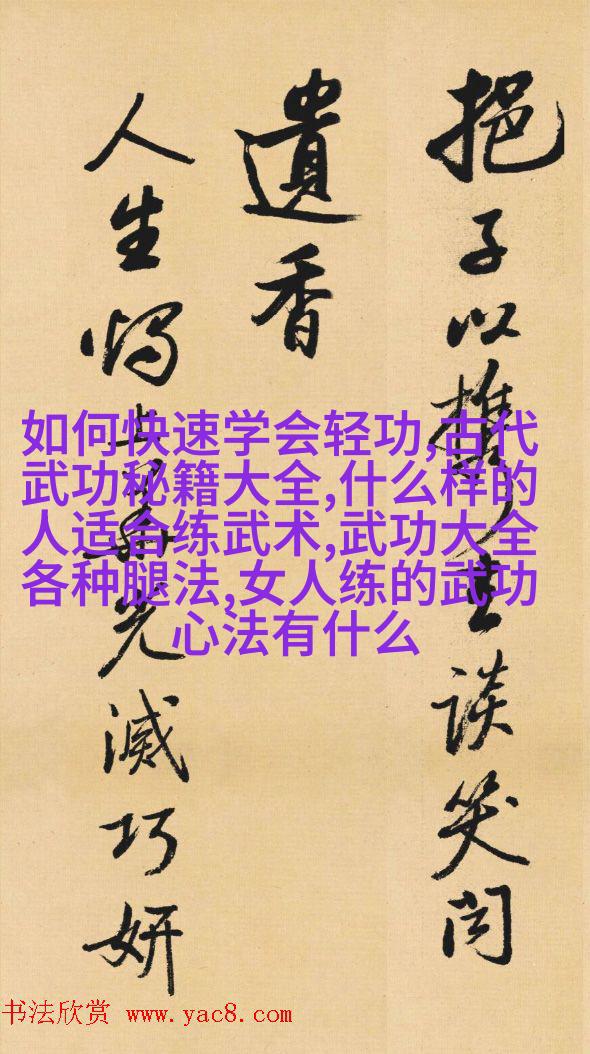 挹子以談笑間
遺香
人生光滅巧妍
如何快速学会轻功,古代
武功秘籍大全,什么样的
人适合练武术,武功大全
各种腿法,女人练的武功
心法有什么
书法欣赏 www.yac8.com